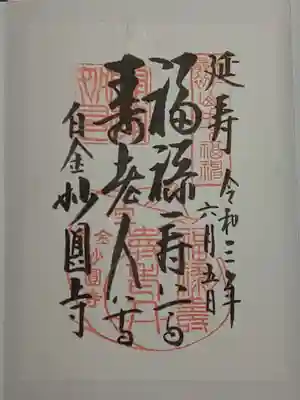 延寿
令和三年
六月五日
福禄寿尊
寿老人尊
白金
妙圓寺